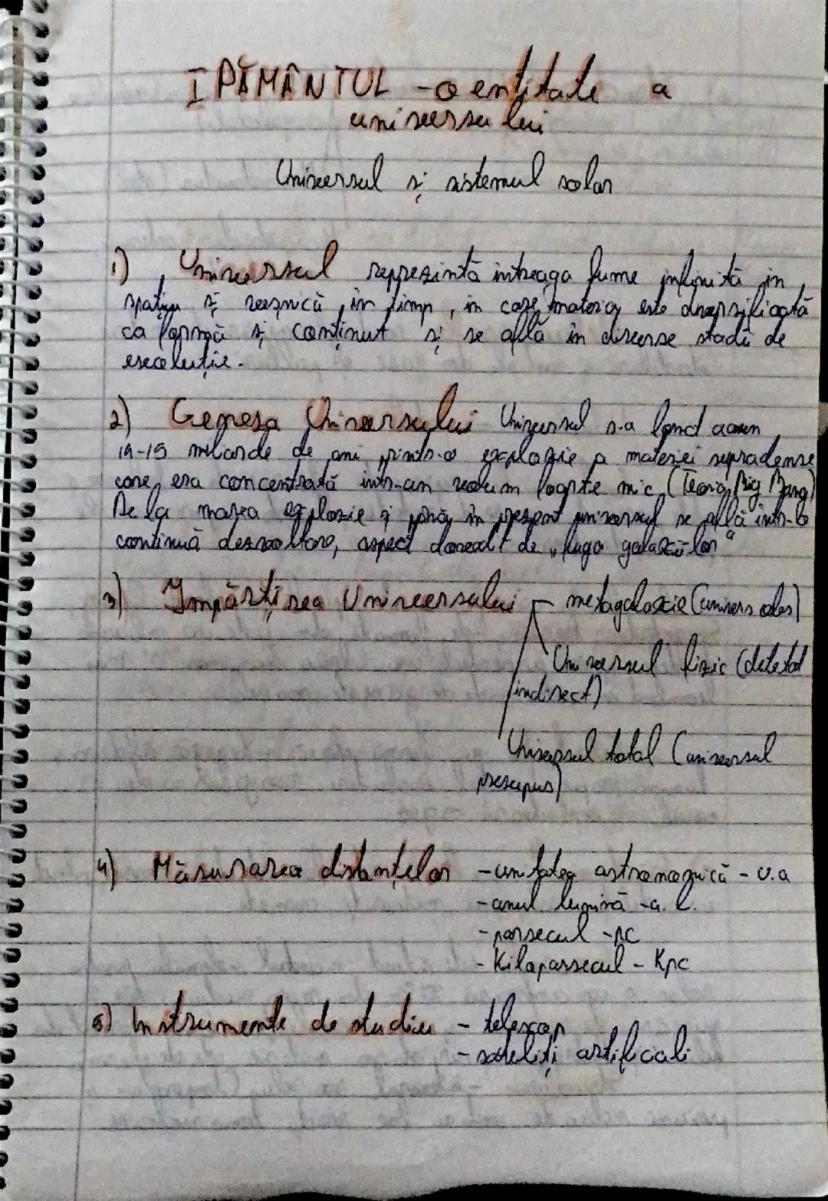 I PĂMÂNTUL - o entitate a
universului
Universul și sistemul solar
1) Universul reprezintă întreaga lume infinită în
spațiu și veșnică în timp, în care materia este diversificată
ca formă și conținut și se află în diverse stadii de
evoluție.
2) Geneza Universului Universul s-a format acum
14-15 miliarde de ani printr-o explozie a materiei supradense
care era concentrată într-un volum foarte mic (Teoria Big Bang)
De la marea explozie și până în prezent universul se află într-o
continuă dezvoltare, aspect dovedit de "fuga galaxiilor"
3) Împărțirea Universului - metagalaxie (univers obs)
Universul fizic (detectat
indirect)
Universul total (universul
presupus)
4) Măsurarea distanțelor - unitatea astronomică - u.a
- anul lumină - a.l.
- parsecul - pc
- Kiloparsecul - Kpc
5) Instrumente de studiu - telescop
- sateliți artificiali